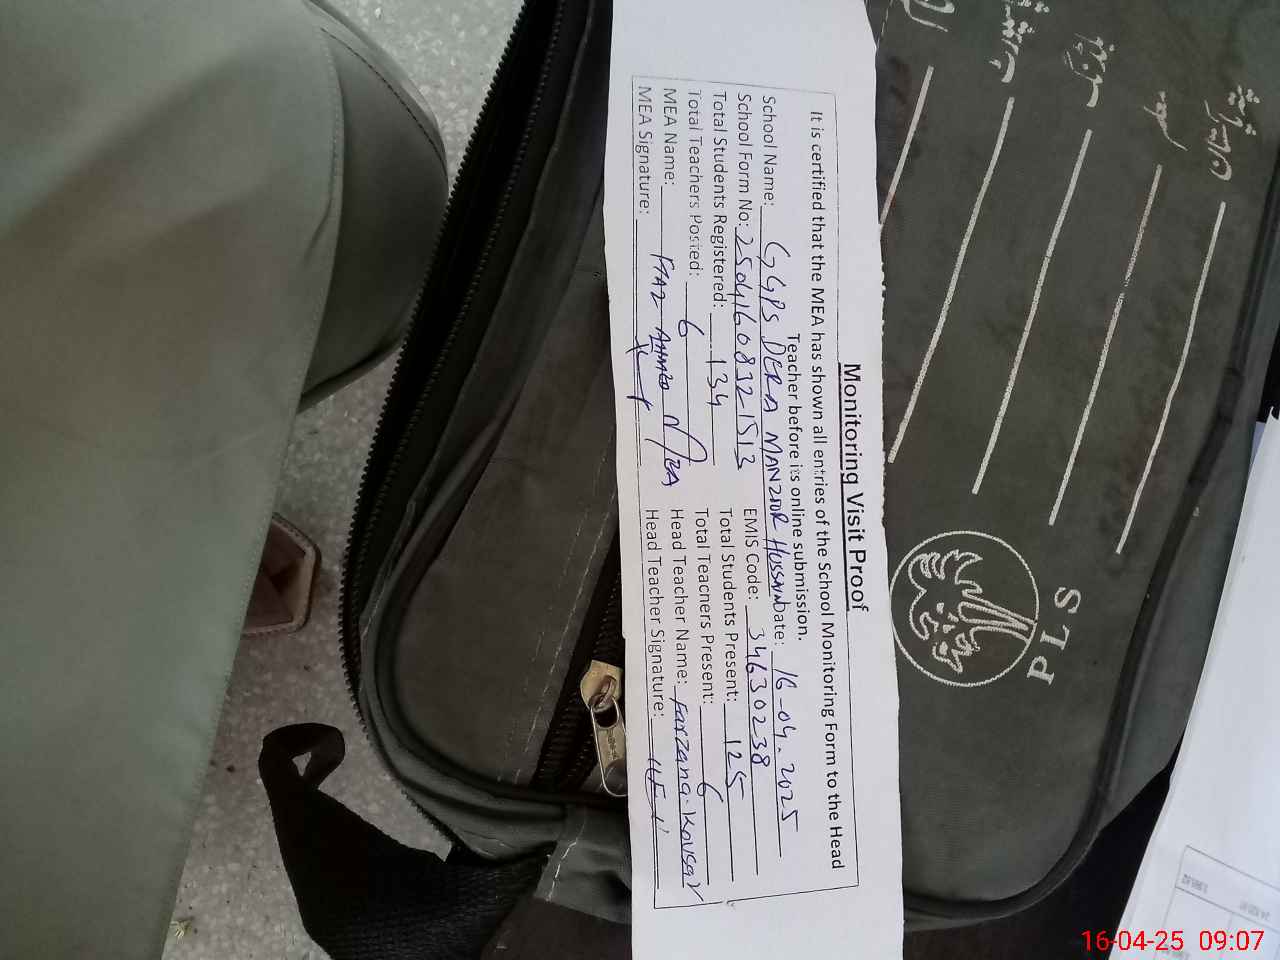 Monitoring Visit Proof
It is certified that the MEA has shown all entries of the School Monitoring Form to the Head
Teacher before its online submission.
School Name: GGPS DERA MANZOOR HUSSAIN Date: 16-04-2025
School Form No: 25041608321513 EMIS Code: 34630238
Total Students Registered: 134 Total Students Present: 125
Total Teachers Posted: 6 Total Teachers Present: 6
MEA Name: AHMED Head Teacher Name: Farzana Kousar
MEA Signature: Head Teacher Signature:
PLS
16-04-25 09:07